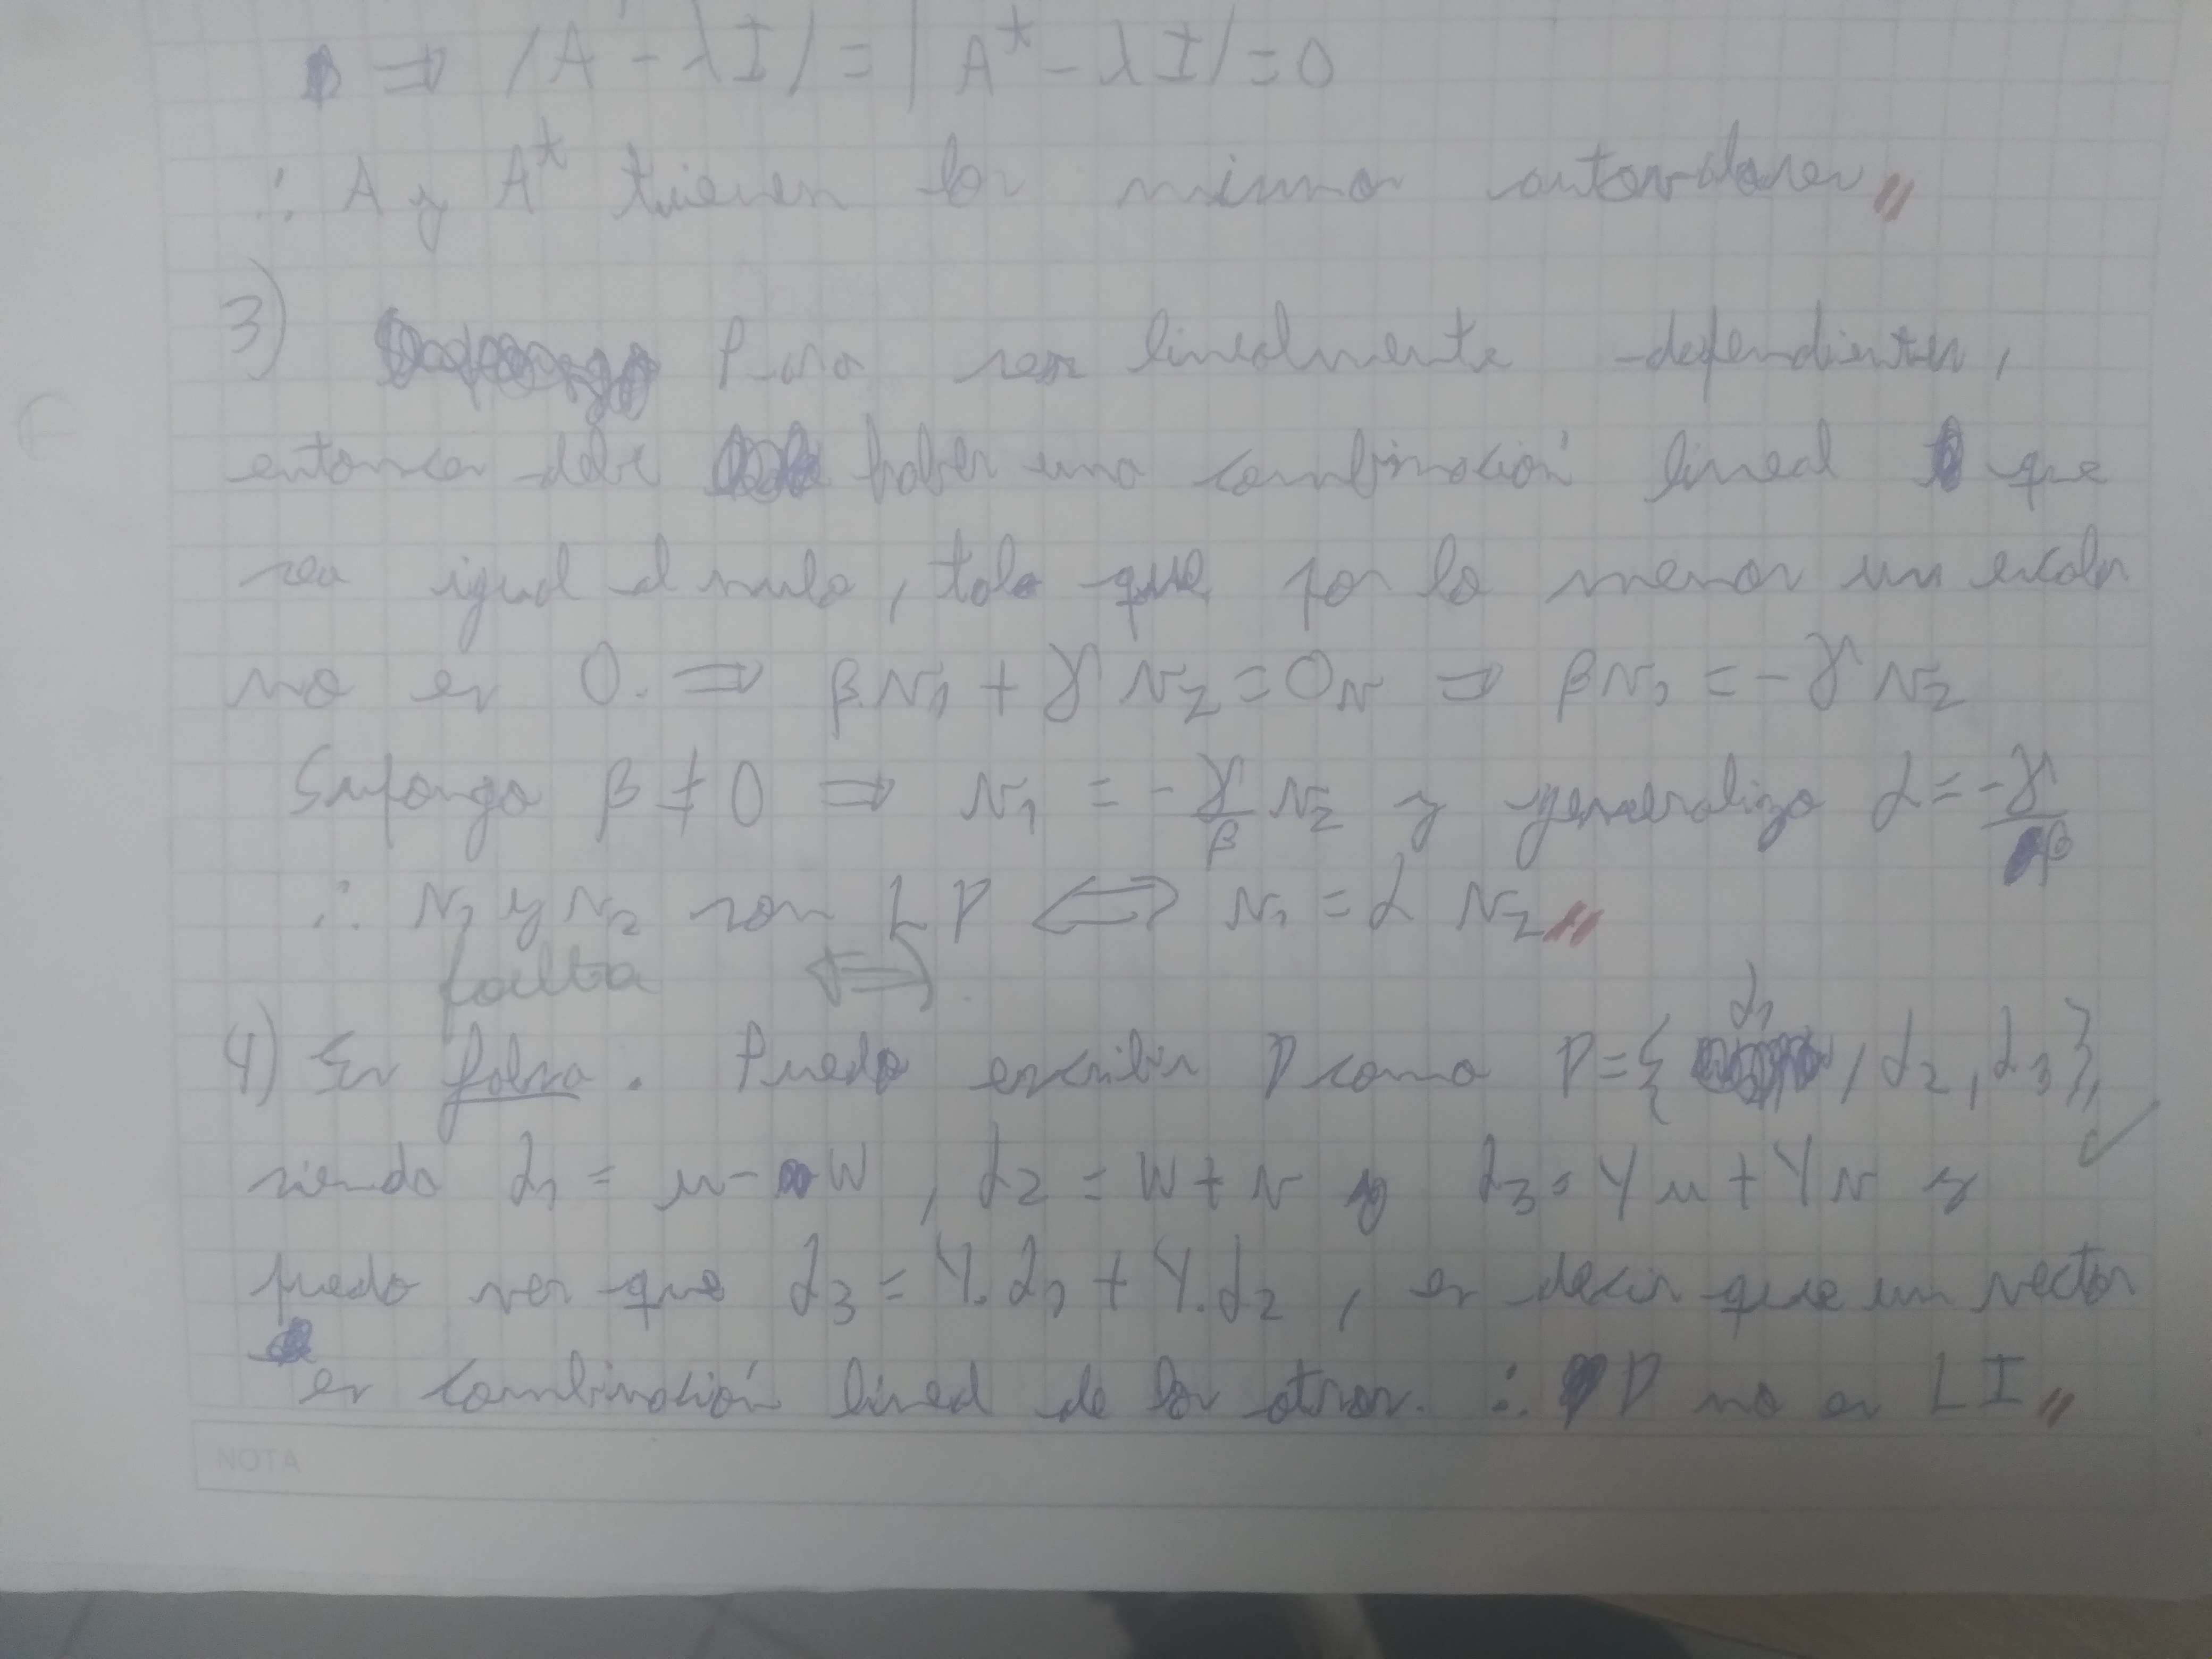 ⇒ |A - λI| = |A* - λI| = 0
∴ A y A* tienen los mismos autovalores //
3) Para ser linealmente dependientes,
entonces debe haber una combinación lineal que
sea igual al nulo, tal que por lo menos un escalar
no es 0. ⇒ βv₁ + γv₂ = 0v ⇒ βv₁ = -γv₂
Supongo β ≠ 0 ⇒ v₁ = -γ/β v₂ y generalizo α = -γ/β
∴ v₁ y v₂ son LD ⟺ v₁ = α v₂ //
falta (⇐).
4) Es falso. Puedo escribir D como D = {α₁, α₂, α₃}, ✓
siendo α₁ = u - w, α₂ = w + v y α₃ = 4u + 4v y
puedo ver que α₃ = 4.α₁ + 4.α₂, es decir que un vector
es combinación lineal de los otros. ∴ D no es LI //
NOTA